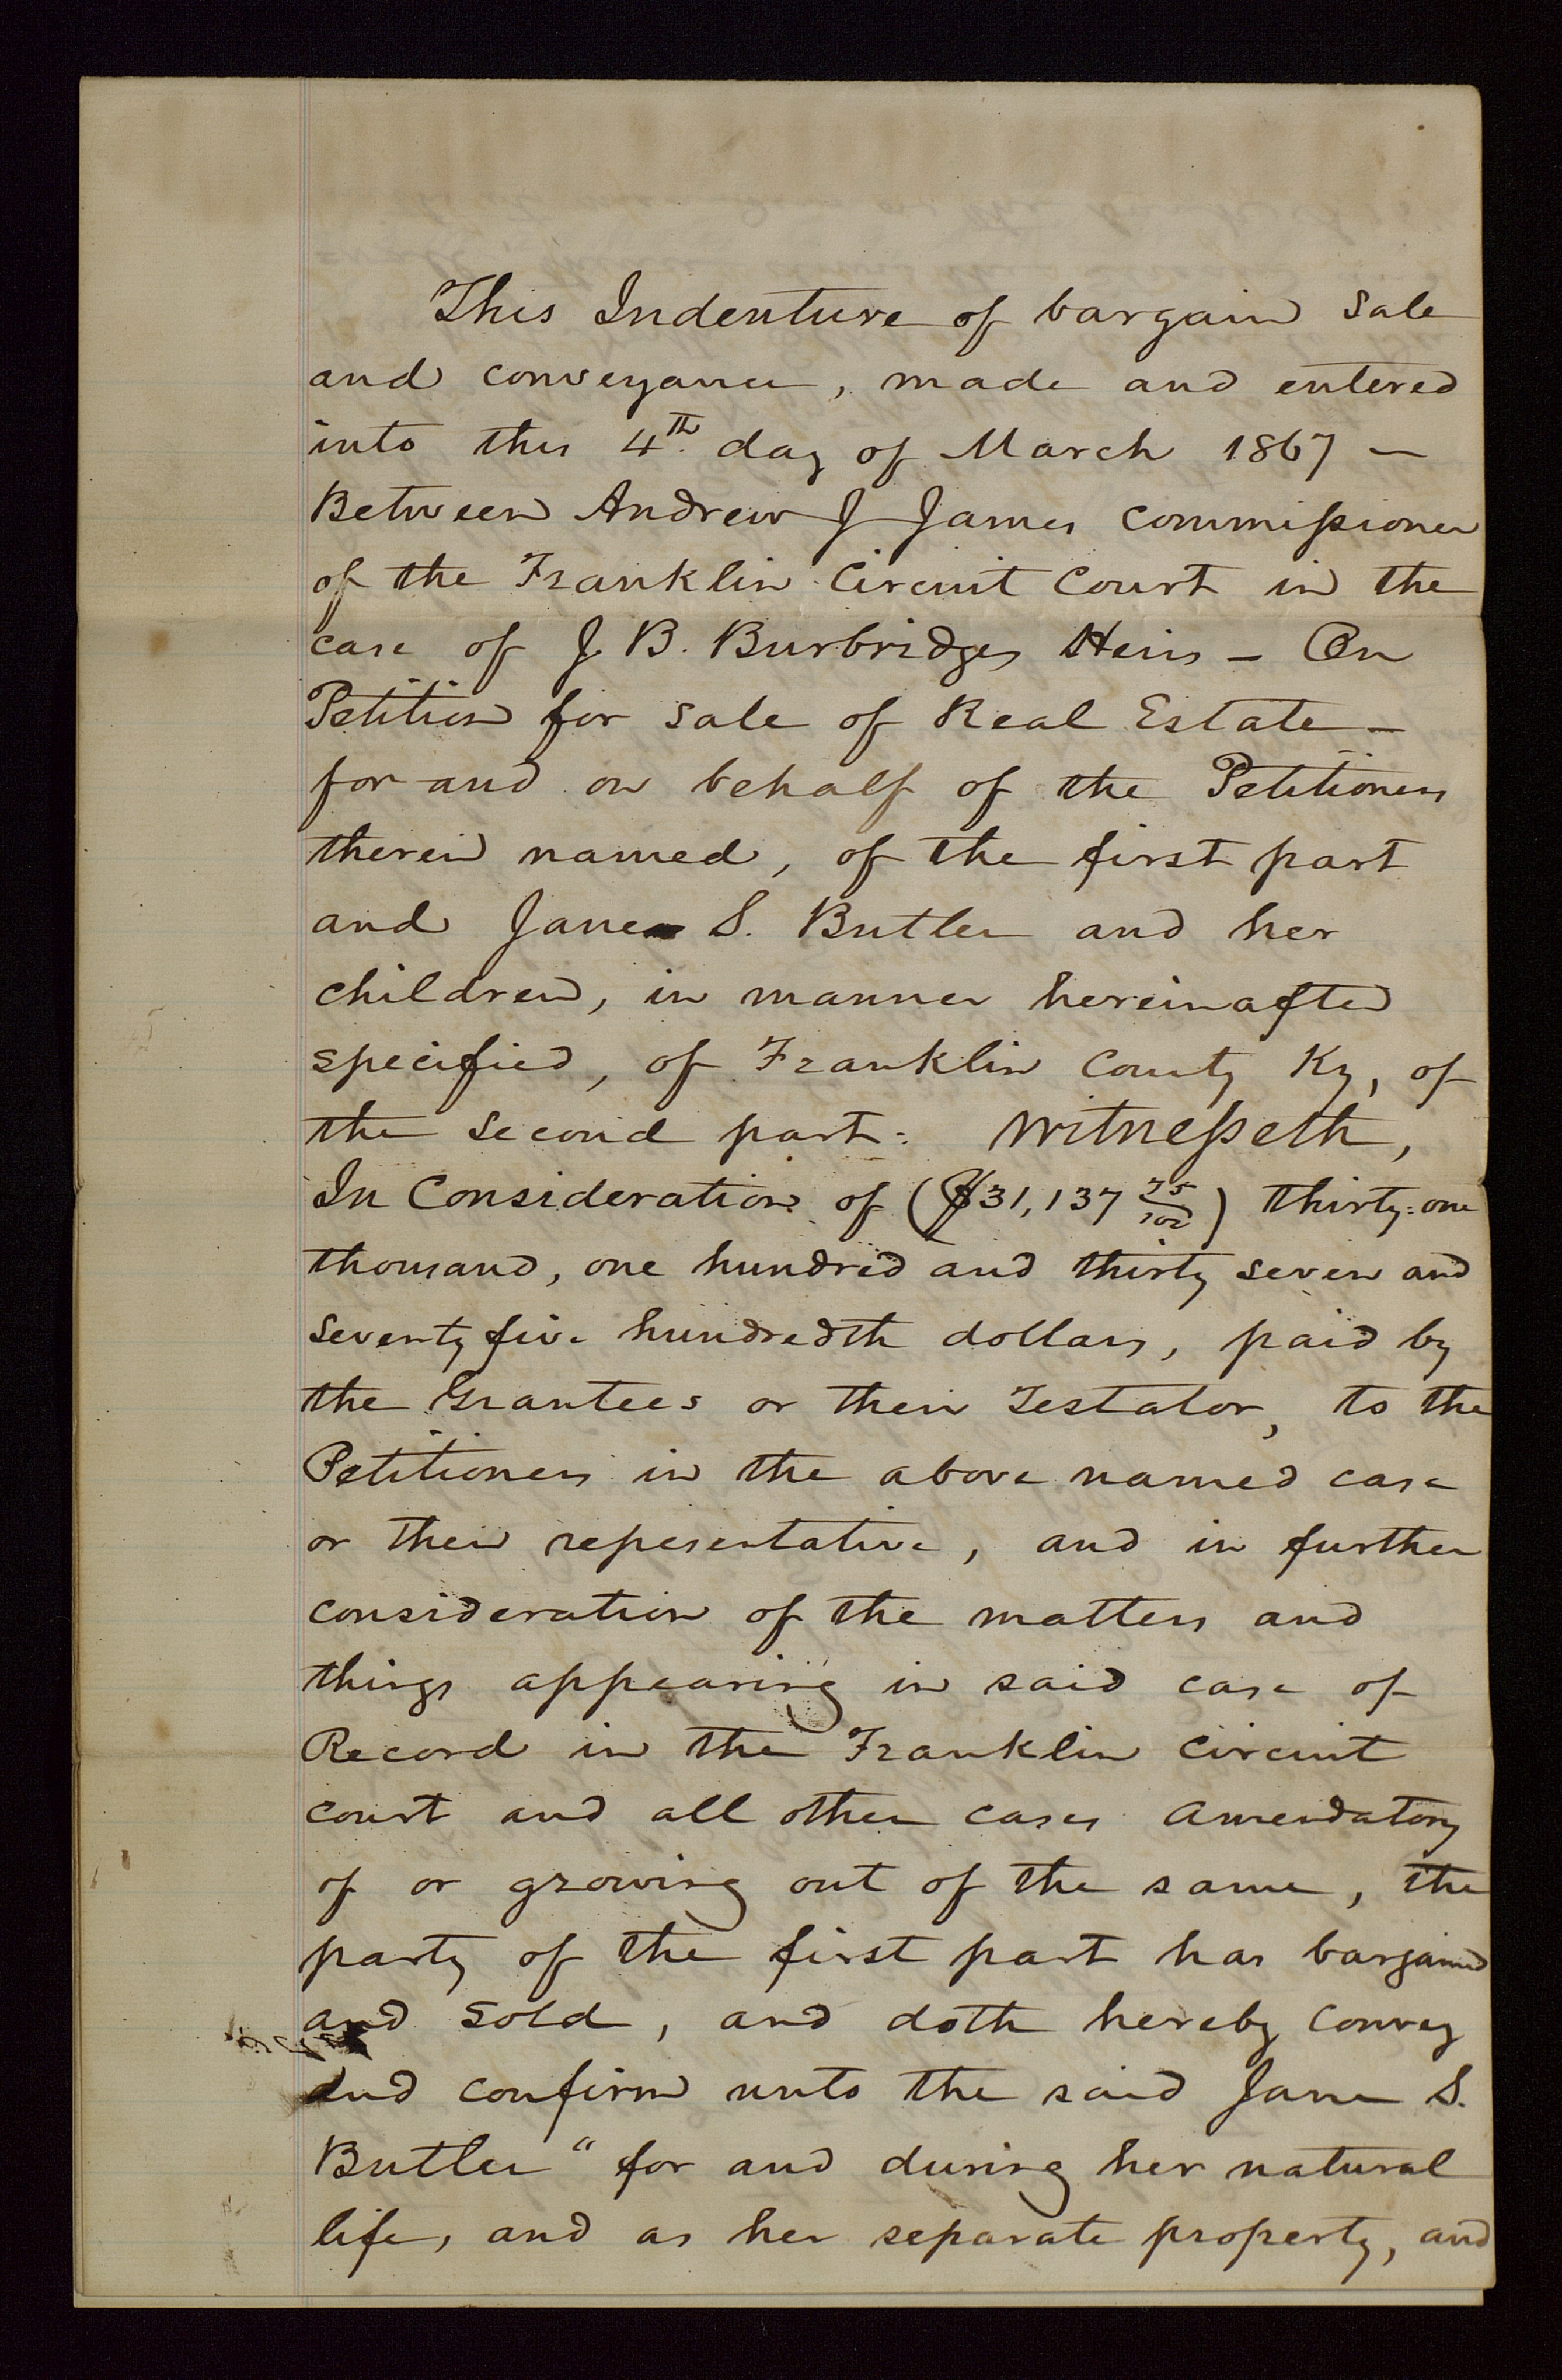 This Indenture of bargain sale
and conveyance, made and entered
into this 4th. day of March 1867 —
Between Andrew J James Commissioner
of the Franklin Circuit Court in the
case of J. B. Burbridges Heirs — On
Petition for sale of Real Estate —
for and on behalf of the Petitioners
therein named, of the first part
and Jane S. Butler and her
children, in manner hereinafter
specified, of Franklin County Ky, of
the second part: Witnesseth,
In Consideration of ($31,137 75/100) thirty-one
thousand, one hundred and thirty seven and
seventy five hundredth dollars, paid by
the Grantees or their Testator, to the
Petitioners in the above named case
or their repesentative, and in further
consideration of the matters and
things appearing in said case of
Record in the Franklin Circuit
court and all other cases amendatory
of or growing out of the same, the
party of the first part has bargained
and sold, and doth hereby convey
and confirm unto the said Jane S.
Butler "for and during her natural
life, and as her separate property, and